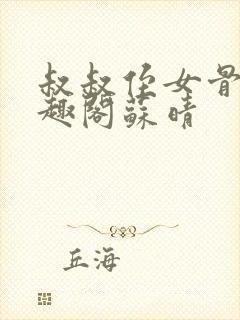 叔叔侄女骨
趣阁蘇晴
丘海